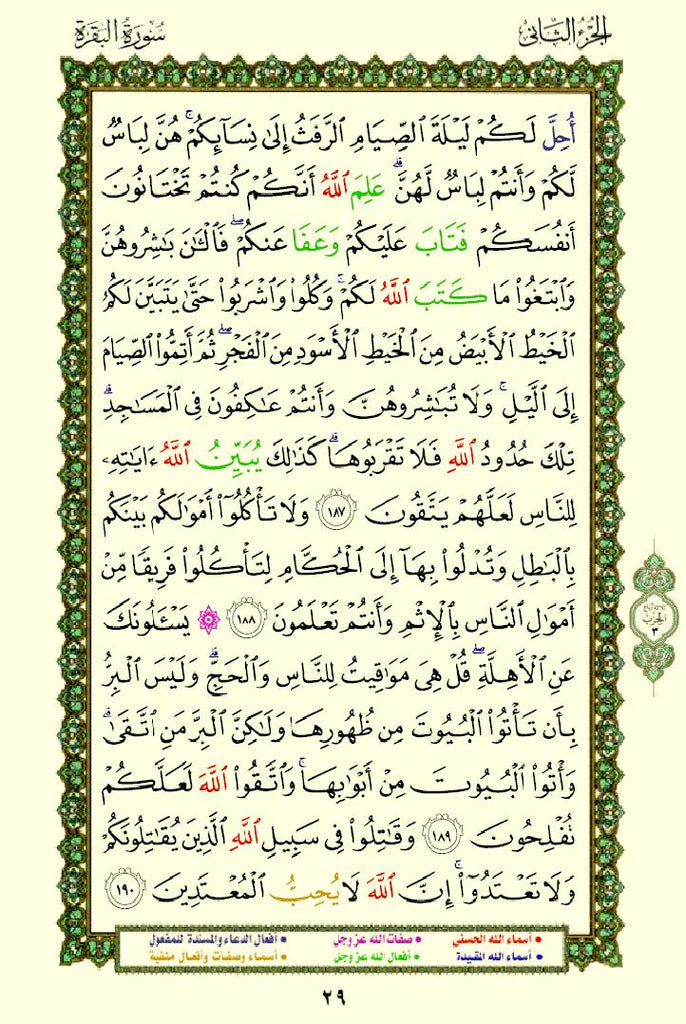 الجزء الثاني
سورة البقرة
أُحِلَّ لَكُمۡ لَيۡلَةَ ٱلصِّيَامِ ٱلرَّفَثُ إِلَىٰ نِسَآئِكُمۡۚ هُنَّ لِبَاسٞ
لَّكُمۡ وَأَنتُمۡ لِبَاسٞ لَّهُنَّۗ عَلِمَ ٱللَّهُ أَنَّكُمۡ كُنتُمۡ تَخۡتَانُونَ
أَنفُسَكُمۡ فَتَابَ عَلَيۡكُمۡ وَعَفَا عَنكُمۡۖ فَٱلۡـَٰٔنَ بَٰشِرُوهُنَّ
وَٱبۡتَغُواْ مَا كَتَبَ ٱللَّهُ لَكُمۡۚ وَكُلُواْ وَٱشۡرَبُواْ حَتَّىٰ يَتَبَيَّنَ لَكُمُ
ٱلۡخَيۡطُ ٱلۡأَبۡيَضُ مِنَ ٱلۡخَيۡطِ ٱلۡأَسۡوَدِ مِنَ ٱلۡفَجۡرِۖ ثُمَّ أَتِمُّواْ ٱلصِّيَامَ
إِلَى ٱلَّيۡلِۚ وَلَا تُبَٰشِرُوهُنَّ وَأَنتُمۡ عَٰكِفُونَ فِي ٱلۡمَسَٰجِدِۗ
تِلۡكَ حُدُودُ ٱللَّهِ فَلَا تَقۡرَبُوهَاۗ كَذَٰلِكَ يُبَيِّنُ ٱللَّهُ ءَايَٰتِهِۦ
لِلنَّاسِ لَعَلَّهُمۡ يَتَّقُونَ ١٨٧ وَلَا تَأۡكُلُوٓاْ أَمۡوَٰلَكُم بَيۡنَكُم
بِٱلۡبَٰطِلِ وَتُدۡلُواْ بِهَآ إِلَى ٱلۡحُكَّامِ لِتَأۡكُلُواْ فَرِيقٗا مِّنۡ
أَمۡوَٰلِ ٱلنَّاسِ بِٱلۡإِثۡمِ وَأَنتُمۡ تَعۡلَمُونَ ١٨٨ ۞ يَسۡـَٔلُونَكَ
عَنِ ٱلۡأَهِلَّةِۖ قُلۡ هِيَ مَوَٰقِيتُ لِلنَّاسِ وَٱلۡحَجِّۗ وَلَيۡسَ ٱلۡبِرُّ
بِأَن تَأۡتُواْ ٱلۡبُيُوتَ مِن ظُهُورِهَا وَلَٰكِنَّ ٱلۡبِرَّ مَنِ ٱتَّقَىٰۗ
وَأۡتُواْ ٱلۡبُيُوتَ مِنۡ أَبۡوَٰبِهَاۚ وَٱتَّقُواْ ٱللَّهَ لَعَلَّكُمۡ
تُفۡلِحُونَ ١٨٩ وَقَٰتِلُواْ فِي سَبِيلِ ٱللَّهِ ٱلَّذِينَ يُقَٰتِلُونَكُمۡ
وَلَا تَعۡتَدُوٓاْۚ إِنَّ ٱللَّهَ لَا يُحِبُّ ٱلۡمُعۡتَدِينَ ١٩٠
الحزب
٣
• أسماء الله الحسنى • صفات الله عز وجل • أفعال الدعاء والمسندة للمفعول
• أسماء الله المقيدة • أفعال الله عز وجل • أسماء وصفات وأفعال منفية
٢٩